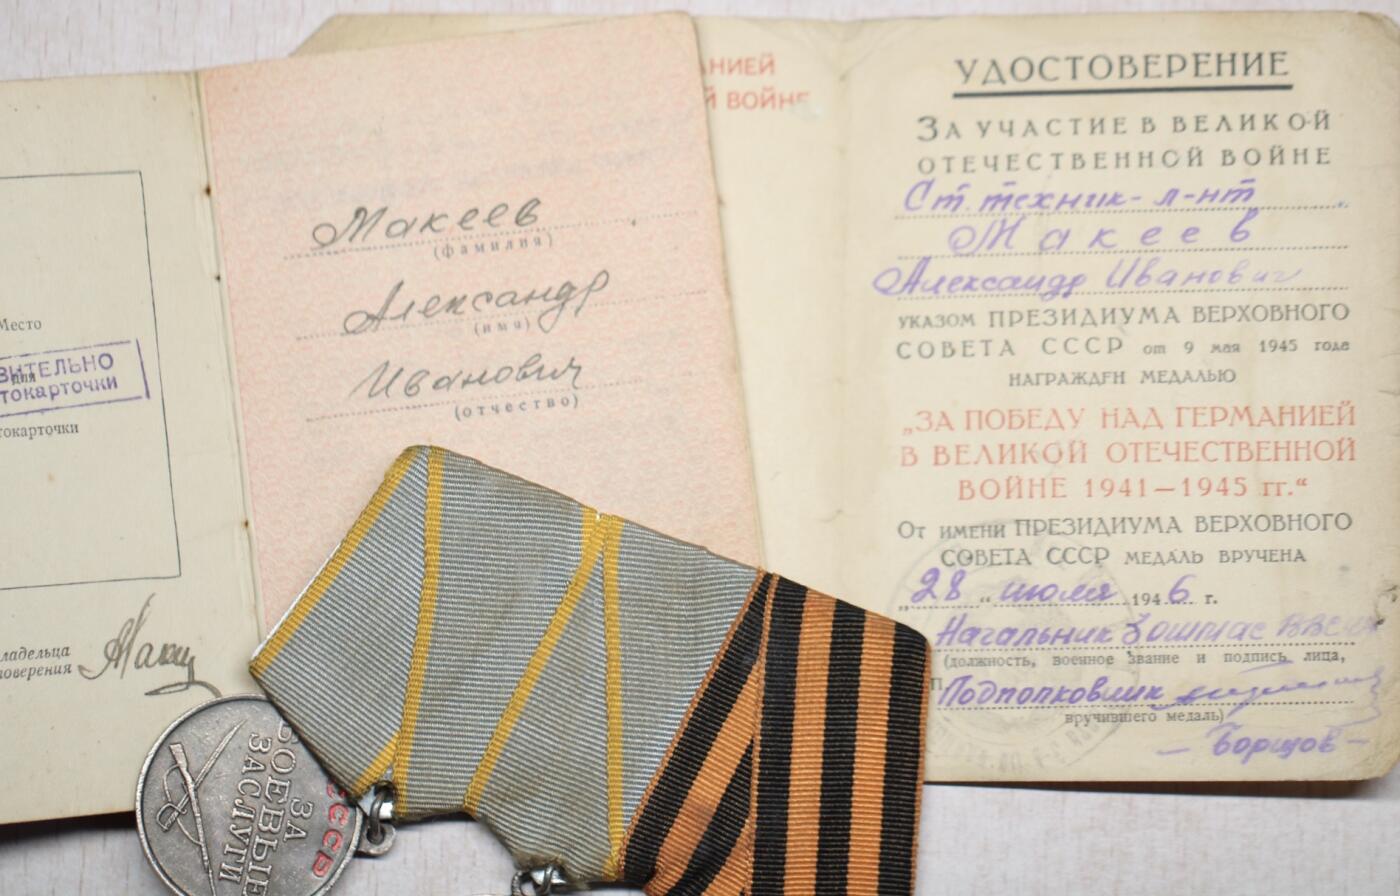 Место
для
ВИТЕЛЬНО
токарточки
токарточки
ладельца
товерения
Макеев
(фамилия)
Александр
(имя)
Иванович
(отчество)
НИЕЙ
Й ВОЙНЕ
УДОСТОВЕРЕНИЕ
ЗА УЧАСТИЕ В ВЕЛИКОЙ
ОТЕЧЕСТВЕННОЙ ВОЙНЕ
Ст. техник-л-нт
Макеев
Александр Иванович
УКАЗОМ ПРЕЗИДИУМА ВЕРХОВНОГО
СОВЕТА СССР от 9 мая 1945 года
НАГРАЖДЕН МЕДАЛЬЮ
„ЗА ПОБЕДУ НАД ГЕРМАНИЕЙ
В ВЕЛИКОЙ ОТЕЧЕСТВЕННОЙ
ВОЙНЕ 1941—1945 гг.“
ОТ ИМЕНИ ПРЕЗИДИУМА ВЕРХОВНОГО
СОВЕТА СССР МЕДАЛЬ ВРУЧЕНА
„28“ июля 1946 г.
Начальник
(должность, военное звание и подпись лица,
Подполковник
вручившего медаль)
— Борщов —
ЗА
БОЕВЫЕ
ЗАСЛУГИ
СССР